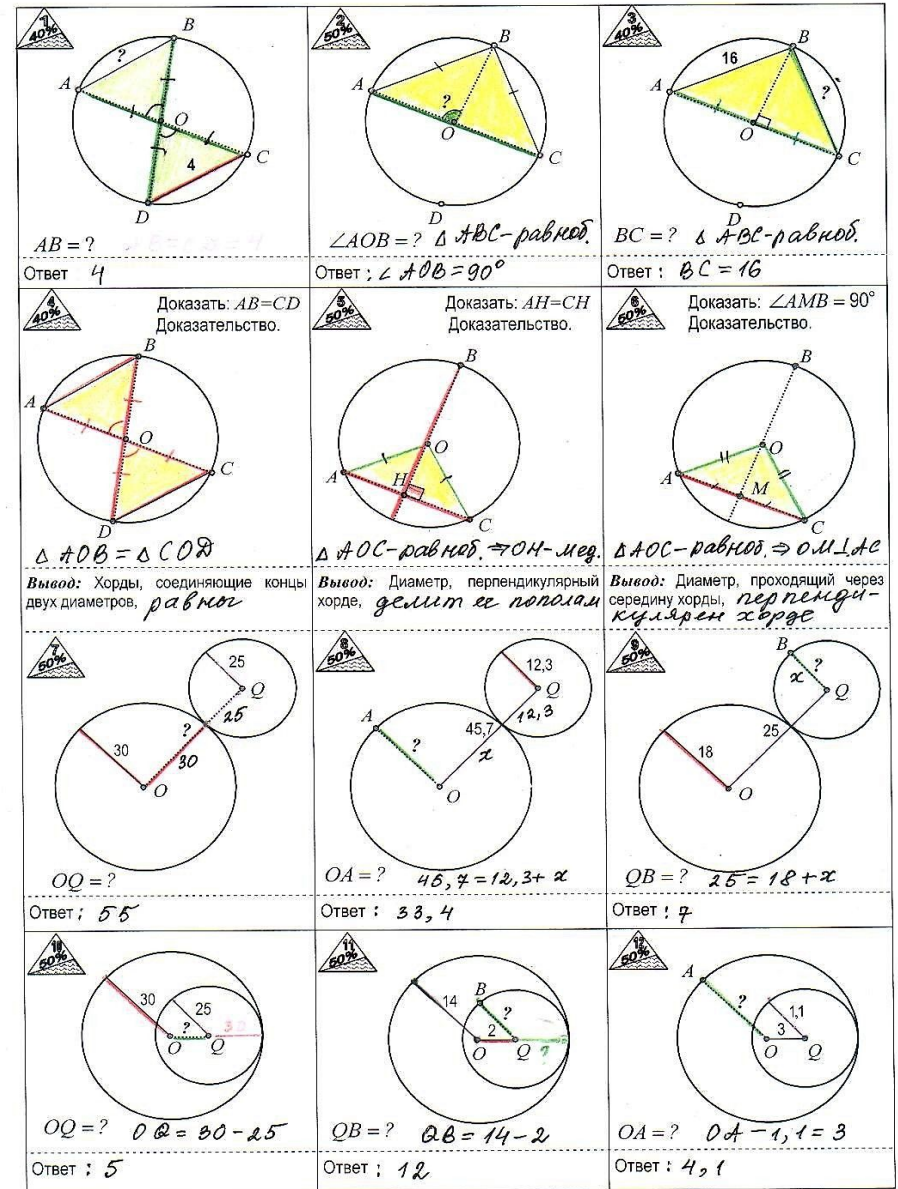 1
40%
B
?
A
O
C
4
D
AB = ?
Ответ 4
2
50%
B
A
?
O
C
D
∠AOB = ? Δ ABC-равноб.
Ответ: ∠ AOB = 90°
3
40%
B
16
A
?
O
C
D
BC = ? Δ ABC-равноб.
Ответ: BC = 16
4
40%
Доказать: AB=CD
Доказательство.
B
A
O
C
D
Δ AOB = Δ COD
Вывод: Хорды, соединяющие концы
двух диаметров, равны
5
50%
Доказать: AH=CH
Доказательство.
B
O
A
H
C
Δ AOC-равноб. ⇒ OH-мед.
Вывод: Диаметр, перпендикулярный
хорде, делит ее пополам
6
50%
Доказать: ∠AMB = 90°
Доказательство.
B
O
A
M
C
Δ AOC-равноб. ⇒ OM⊥AC
Вывод: Диаметр, проходящий через
середину хорды, перпенди-
кулярен хорде
7
50%
25
Q
25
?
30
30
O
OQ = ?
Ответ: 55
8
50%
12,3
Q
A
45,7
12,3
?
x
O
OA = ? 45,7 = 12,3 + x
Ответ: 33,4
9
50%
B
?
x
Q
25
18
O
QB = ? 25 = 18 + x
Ответ: 7
10
50%
30
25
?
30
O
Q
OQ = ? OQ = 30 - 25
Ответ: 5
11
50%
14
B
?
2
O
Q
?
QB = ? QB = 14 - 2
Ответ: 12
12
50%
A
?
1,1
3
O
Q
OA = ? OA - 1,1 = 3
Ответ: 4,1